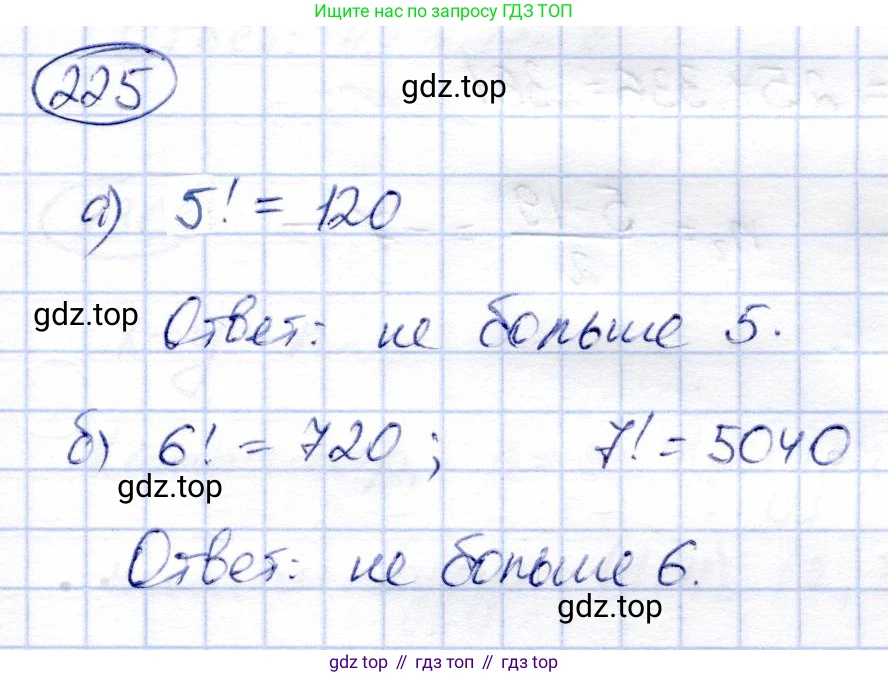 Ищите нас по запросу ГДЗ ТОП
225
gdz.top
а) 5! = 120
gdz.top
Ответ: не больше 5.
б) 6! = 720; 7! = 5040
gdz.top
Ответ: не больше 6.
gdz.top
gdz top // гдз топ // gdz top